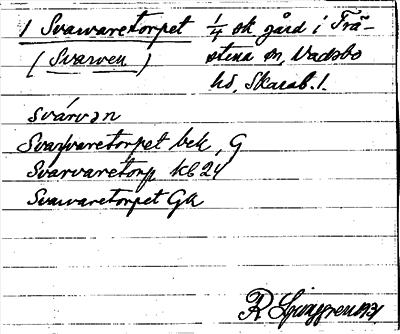 1 Svarvaretorpet 1/4 sk gård i Trä-
(Svarven) stena sn, Vadsbo
hd, Skarab. l.
svárvən
Svarfvaretorpet bek, G
Svarvaretorp kb 24
Svarvaretorpet Gk
R Ljunggren 1931